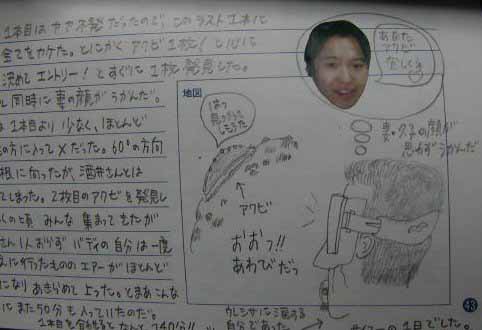 1本目はやや不発だったので、このラスト1本に
全てをかケた。とにかくアクビ1枚！と心に
決めてエントリー！とすぐに1枚発見した。
と同時に妻の顔がうかんだ。
1本目より少なく、ほとんど
の方に入って×だった。60°の方向
根に向ったが、酒井さんとは
てしまった。2枚目のアクビを発見し
くの頃みんな集まってきたが
さん1人おらず バディの自分は一度
に行ったもののエアーがほとんど
になりあきらめて上った。とまあこんな
にまた50分も入っていたのだ。
1本目を合わせるとなんと240分!!
地図
はっ
見つかって
しまった
アクビ
おおっ!!
あわびだっ
あなた
アクビ
忘れ
妻・久子の顔が
思わずうかんだ
ウレシサに涙する
自分であった
の1日でした。
43